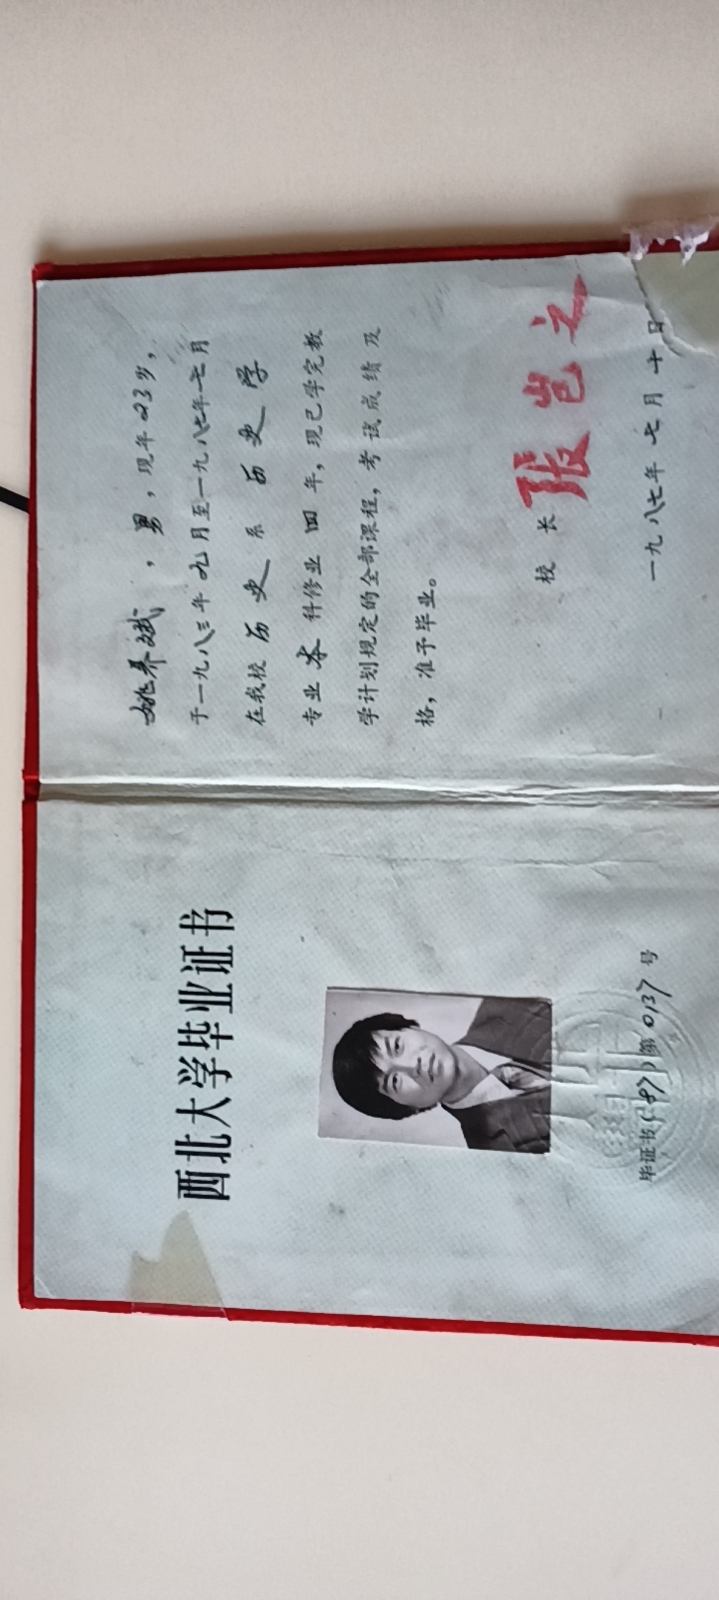 西北大学毕业证书
毕证书(87)第0137号
姚养斌，男，现年23岁，
于一九八三年九月至一九八七年七月
在我校历史系历史学
专业本科修业四年，现已学完教
学计划规定的全部课程，考试成绩及
格，准予毕业。
校长 張岂之
一九八七年七月十日